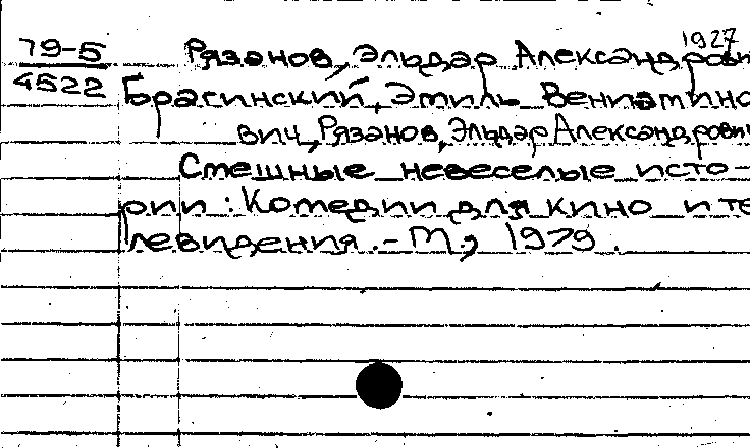 1927
79-5 Рязанов, Эльдар Александрови
4522 Брагинский, Эмиль Вениамино
вич, Рязанов, Эльдар Александрови
Смешные невеселые исто-
рии: Комедии для кино и те
левидения. - М, 1979.